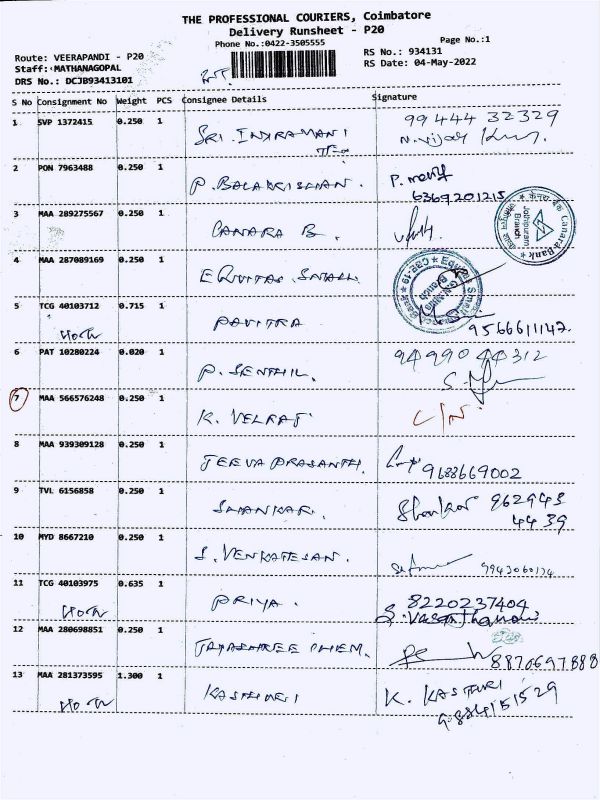 THE PROFESSIONAL COURIERS, Coimbatore
Delivery Runsheet - P20
Phone No.:0422-3505555
Page No.:1
Route: VEERAPANDI - P20
RS No.: 934131
Staff: MATHANAGOPAL
RS Date: 04-May-2022
DRS No.: DCJB93413101
S No Consignment No Weight PCS Consignee Details Signature
1 SVP 1372415 0.250 1 SRI. INDRAMANI 99444 32329
2 PON 7963488 0.250 1 P. BALAKRISHNAN. P.
6369201215
3 MAA 289275567 0.250 1 CANARA B.
Canara Bank
Branch
4 MAA 287089169 0.250 1 EQUITAS SMALL
5 TCG 40103712 0.715 1 PAVITRA
9566611142
6 PAT 10280224 0.020 1 P. SENTHIL. 9499044312
7 MAA 566576248 0.250 1 K. VELRAJ C/N.
8 MAA 939309128 0.250 1 JEEVA PRASANTH. 9688669002
9 TVL 6156858 0.250 1 SHANKAR. Shankar 962943
4439
10 MYD 8667210 0.250 1 S. VENKATESAN.
11 TCG 40103975 0.635 1 PRIYA. 8220237404
12 MAA 280698851 0.250 1 JAYASHREE CHEM. 8870697888
13 MAA 281373595 1.300 1 KASTHURI K. KASTURI
9884151529